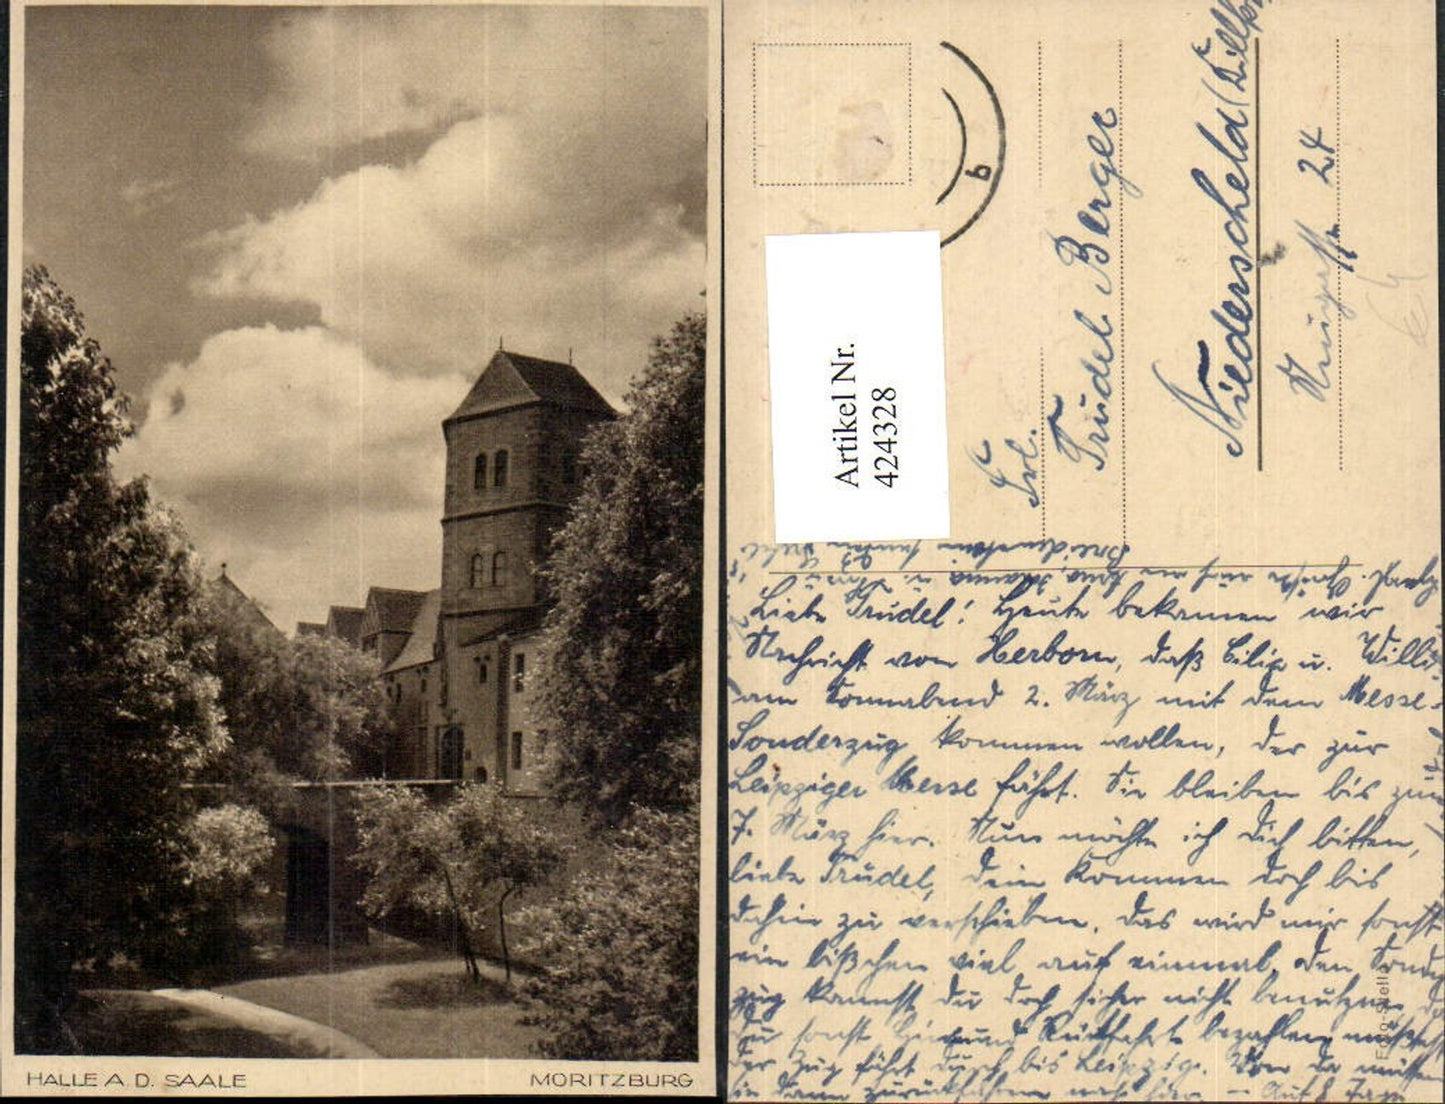 HALLE A. D. SAALE
MORITZBURG
b
Artikel Nr.
424328
Frl.
Trudel Berger
Niederscheld (Dillkr
24
Liebe Trudel! Heute bekamen wir
Nachricht von Herborn, daß Cilie u. Willi
am Sonnabend 2. März mit dem Messe-
Sonderzug kommen wollen, der zur
Leipziger Messe fährt. Sie bleiben bis zum
7. März hier. Nun möchte ich Dich bitten,
liebe Trudel, Dein Kommen doch bis
dahin zu verschieben. Das wird mir sonst
ein bißchen viel auf einmal, den Sonder
zug kannst du doch sicher nicht benutzen
du sonst Hin und Rückfahrt bezahlen müßtest
der Zug fährt durch bis Leipzig. Von da müssen
sie dann zurückfahren nach hier. – Auf 8 Tage